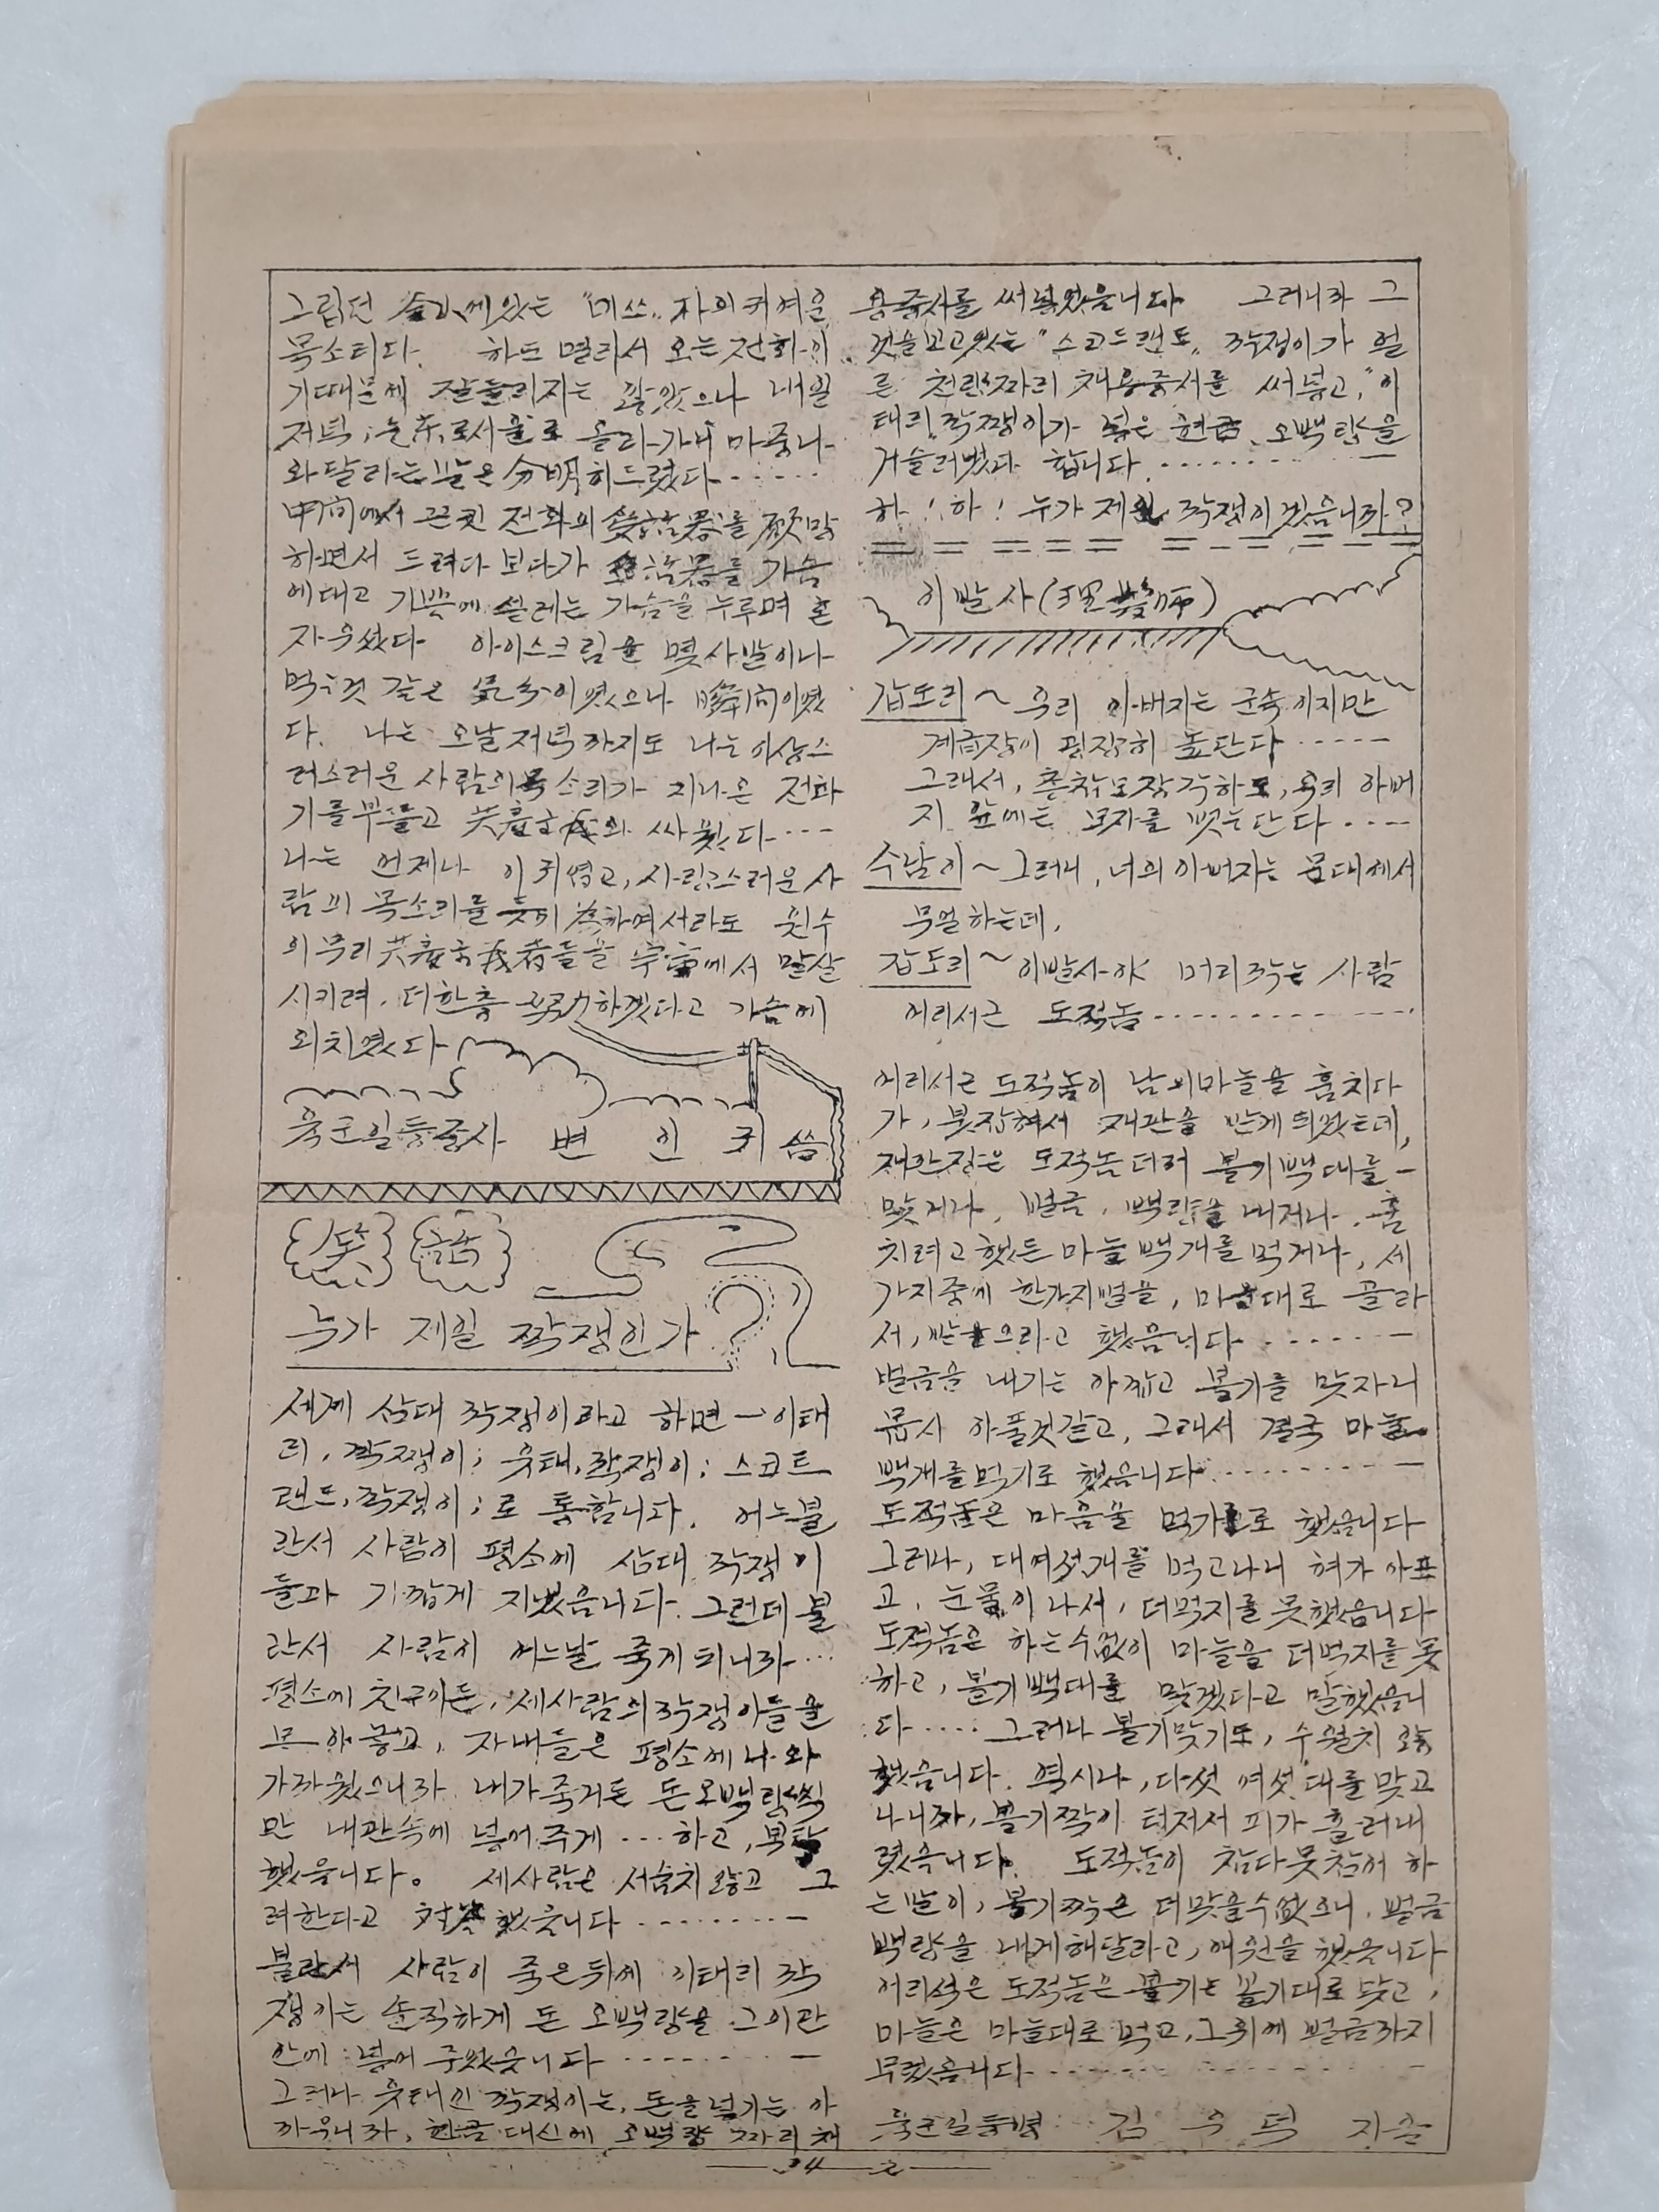 그립던 金氏에있는 "미쓰" 자의귀여운
목소리다. 하도 멀리서 오는 전화이
기때문에 잘들리지는 않았으나 내일
저녁, 로서울로 올라가니 마중나
와달라는말은 分明히드렸다·····
中間에서 끈킨 전화의 受話器를 寂막
하면서 드려다 보다가 受話器를 가슴
에대고 기쁨에 설레는 가슴을 누루며 혼
자우섰다 아이스크림을 몇사발이나
먹은것 같은 氣分이였으나 瞬間이였
다. 나는 오날저녁까지도 나는 사랑스
러스러운 사람의목소리가 지나온 전화
기를부뜰고 共産主義와 싸웠다···
나는 언제나 이 귀엽고, 사랑스러운 사
람의 목소리를 듯기 為하여서라도 원수
의무리 共産主義者들을 宇宙에서 말살
시키려, 더한층 努力하겠다고 가슴에
외치였다
육군일등중사 변 인 귀 씀
笑 話
누가 제일 깍쟁인가?
세계 삼대 깍쟁이라고 하면 - 이태
리, 깍쟁이; 유태, 깍쟁이; 스코트
랜드, 깍쟁이; 로 통합니다. 어느불
란서 사람이 평소에 삼대 깍쟁이
들과 가깝게 지냈읍니다. 그런데 불
란서 사람이 어느날 죽게 되니까···
평소에 친구이든, 세사람의깍쟁이들을
모아 놓고, 자네들은 평소에 나와
가까웠으니까 내가죽거든 돈오백량씩
만 내관속에 넣어주게 ···하고, 부탁
했읍니다。 세사람은 서슴치않고 그
려한다고 対答했읍니다 ········—
불란서 사람이 죽은뒤에 이태리 깍
쟁이는 솔직하게 돈 오백량을 그의관
안에 넣어 주었읍니다 ········—
그러나 유태인 깍쟁이는, 돈을넣기는 아
까우니까, 현금 대신에 오백량 짜리 채
용증서를 써넣었읍니다 그러니까 그
것을보고있는 "스코드랜드" 깍쟁이가 얼
른 천량짜리 채용증서를 써넣고, "이
태리" 깍쟁이가 넣은 현금 오백량을
거슬러냈다 합니다.·········—
하! 하! 누가 제일 깍쟁이겠음니까?
이발사(理髮師)
갑도리~우리 아버지는 군속이지만
계급장이 굉장히 높단다·····—
그래서, 총참모장각하도, 우리 아버
지 앞에는 모자를 벗는단다·····
수남이~그러니, 너의아버지는 군대에서
무얼하는데,
갑도리~이발사야 머리깍는 사람
어리서근 도적놈··············
어리서근 도적놈이 남의마늘을 훔치다
가, 붓잡혀서 재판을 받게되였는데,
재판장은 도적놈더러 볼기백대를 -
맞거나, 벌금, 백량을 내거나, 훔
치려고 했든 마늘 백개를 먹거나, 세
가지중에 한가지벌을, 마음대로 골라
서, 받으라고 했읍니다 ·······—
벌금을 내기는 아깝고 볼기를 맞자니
몹시 아풀것같고, 그래서 결국 마늘
백개를먹기로 했읍니다·········—
도적놈은 마음을 먹기로 했읍니다
그러나, 대여섯개를 먹고나니 혀가 아프
고, 눈물이 나서, 더먹지를 못했읍니다
도적놈은 하는수없이 마늘을 더먹자를 못
하고, 볼기백대를 맞겠다고 말했읍니
다 ···· 그러나 볼기맞기도, 수월치 않
했읍니다. 역시나, 다섯 여섯 대를 맞고
나니까, 볼기짝이 터저서 피가 흘러내
렸읍니다. 도적놈이 참다못참어 하
는말이, 볼기짝은 더맞을수없으니, 벌금
백량을 내게해달라고, 애원을 했읍니다
어리석은 도적놈은 볼기는 볼기대로 맞고,
마늘은 마늘대로 먹고, 그위에 벌금까지
무렀읍니다················—
육군일등병 김 우 덕 지음
34